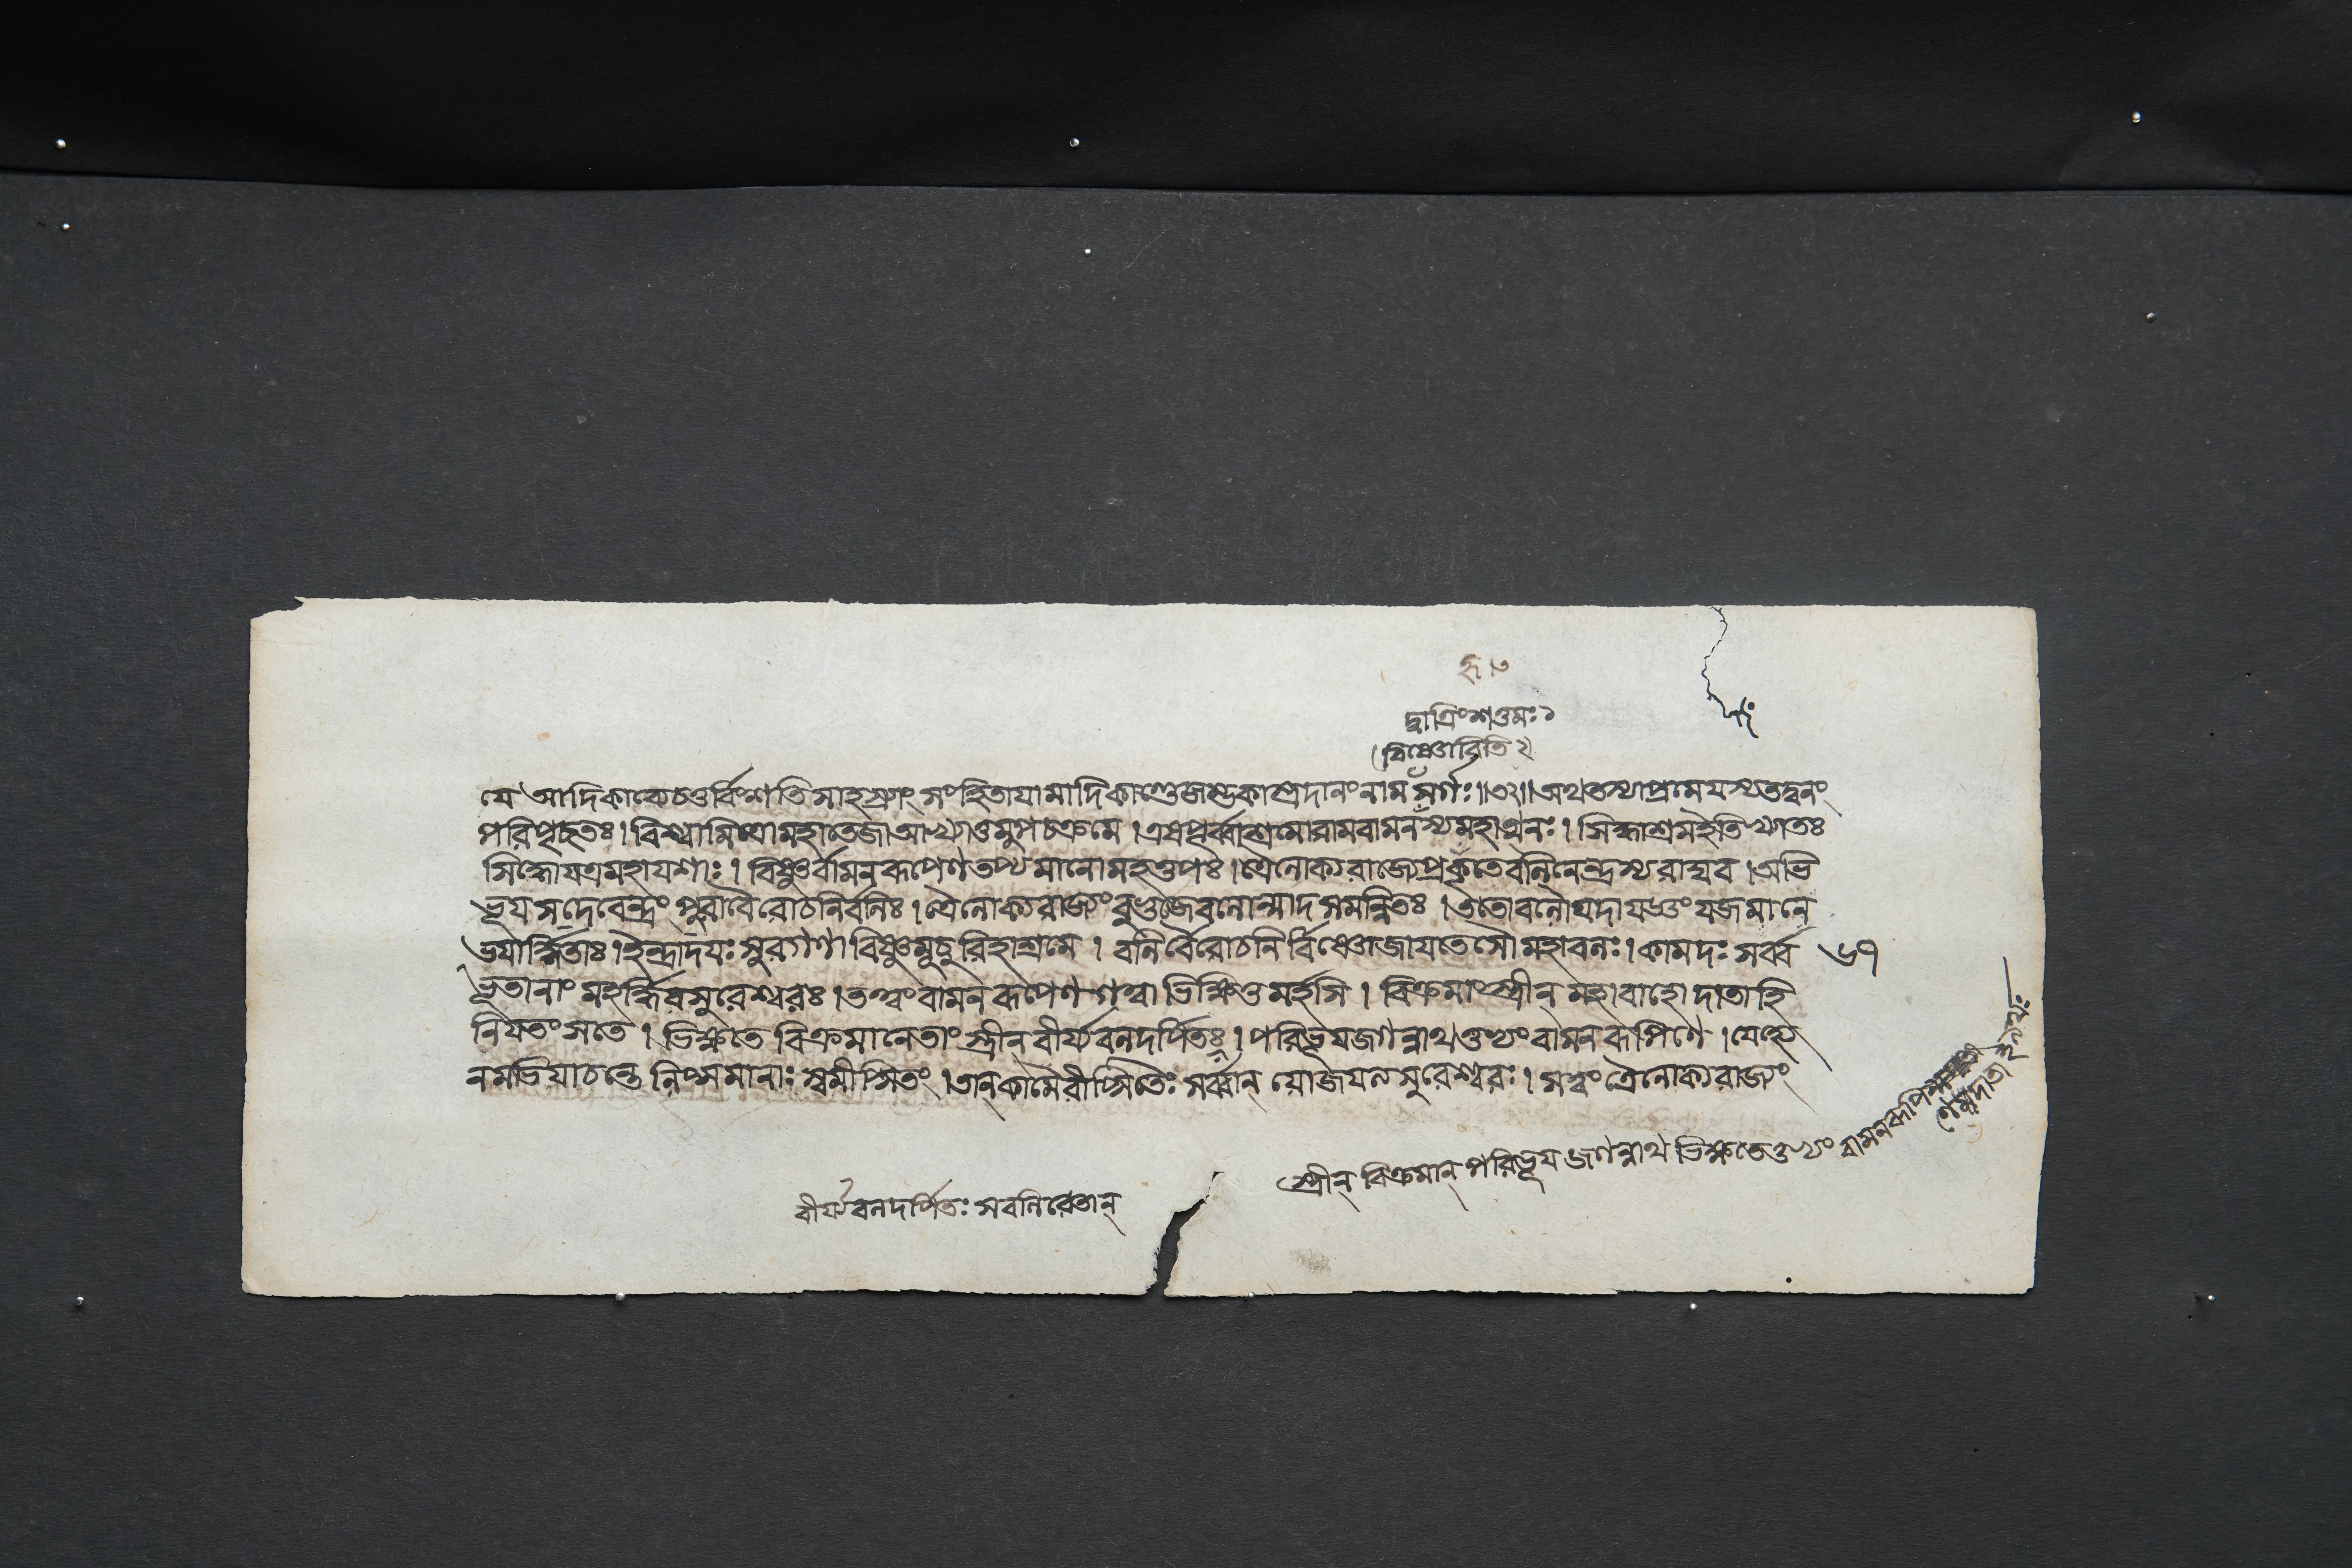 দ্বাত্রিংশত্তমঃ১
বিষ্ণোরিতি ২
যে আদিকাব্যে চতুর্বিংশতি সাহস্র্যাং সংহিতাযামাদিকাণ্ডে জম্ভকাস্ত্রপ্রদানং নাম সর্গঃ॥৩২॥ অথ তস্যাপ্রমেযস্য তদ্বনং
পরিপৃচ্ছতঃ। বিশ্বামিত্রো মহাতেজা আখ্যাতুমুপচক্রমে। এষ পূর্ব্বাশ্রমো রাম বামনস্য মহাত্মনঃ। সিদ্ধাশ্রম ইতি খ্যাতঃ
সিদ্ধো যত্র মহাযশাঃ। বিষ্ণুর্বামন রূপেণ তপ্যমানো মহত্তপঃ। ত্রৈলোক্য রাজ্যে প্রকৃতে বলিনেন্দ্রস্য রাঘব। অভি
ভূয স দেবেন্দ্রং পুরা বৈরোচনির্বলিঃ। ত্রৈলোক্য রাজ্যং বুভুজে বলোন্মাদ সমন্বিতঃ। ততো বলৌ যদা যজ্ঞং যজমানে
ভযার্দ্দিতাঃ। ইন্দ্রাদযঃ সুরগণা বিষ্ণুমুচুরিহাশ্রমে। বলির্বৈরোচনির্বিষ্ণো জাযতেসৌ মহাবলঃ। কামদঃ সর্ব্ব ৬৭
ভূতানাং মহর্দ্ধিরসুরেশ্বরঃ। তত্ত্বং বামন রূপেণ গত্বা ভিক্ষিতুমর্হসি। বিক্রমাংস্ত্রীন্ মহাবাহো দাতাহি
নিযতং সতে। ভিক্ষিতে বিক্রমানেতাং স্ত্রীন্ বীর্য্য বলদর্পিতঃ। পরিভূয জগন্নাথ তুভ্যং বামন রূপিণে। যেহ্যে
নমভিযাচন্তে লিপ্সমানাঃ স্বমীপ্সিতং। তান্ কামৈরীপ্সিতৈঃ সর্ব্বান্ যোজযত্যসুরেশ্বরঃ। সত্বং ত্রৈলোক্য রাজ্যং
বীর্য্য বলদর্পিতঃ সবলিরেতান্
স্ত্রীন্ বিক্রমান্ পরিভূয জগন্নাথ ভিক্ষতে তুভ্যং বামন রূপি